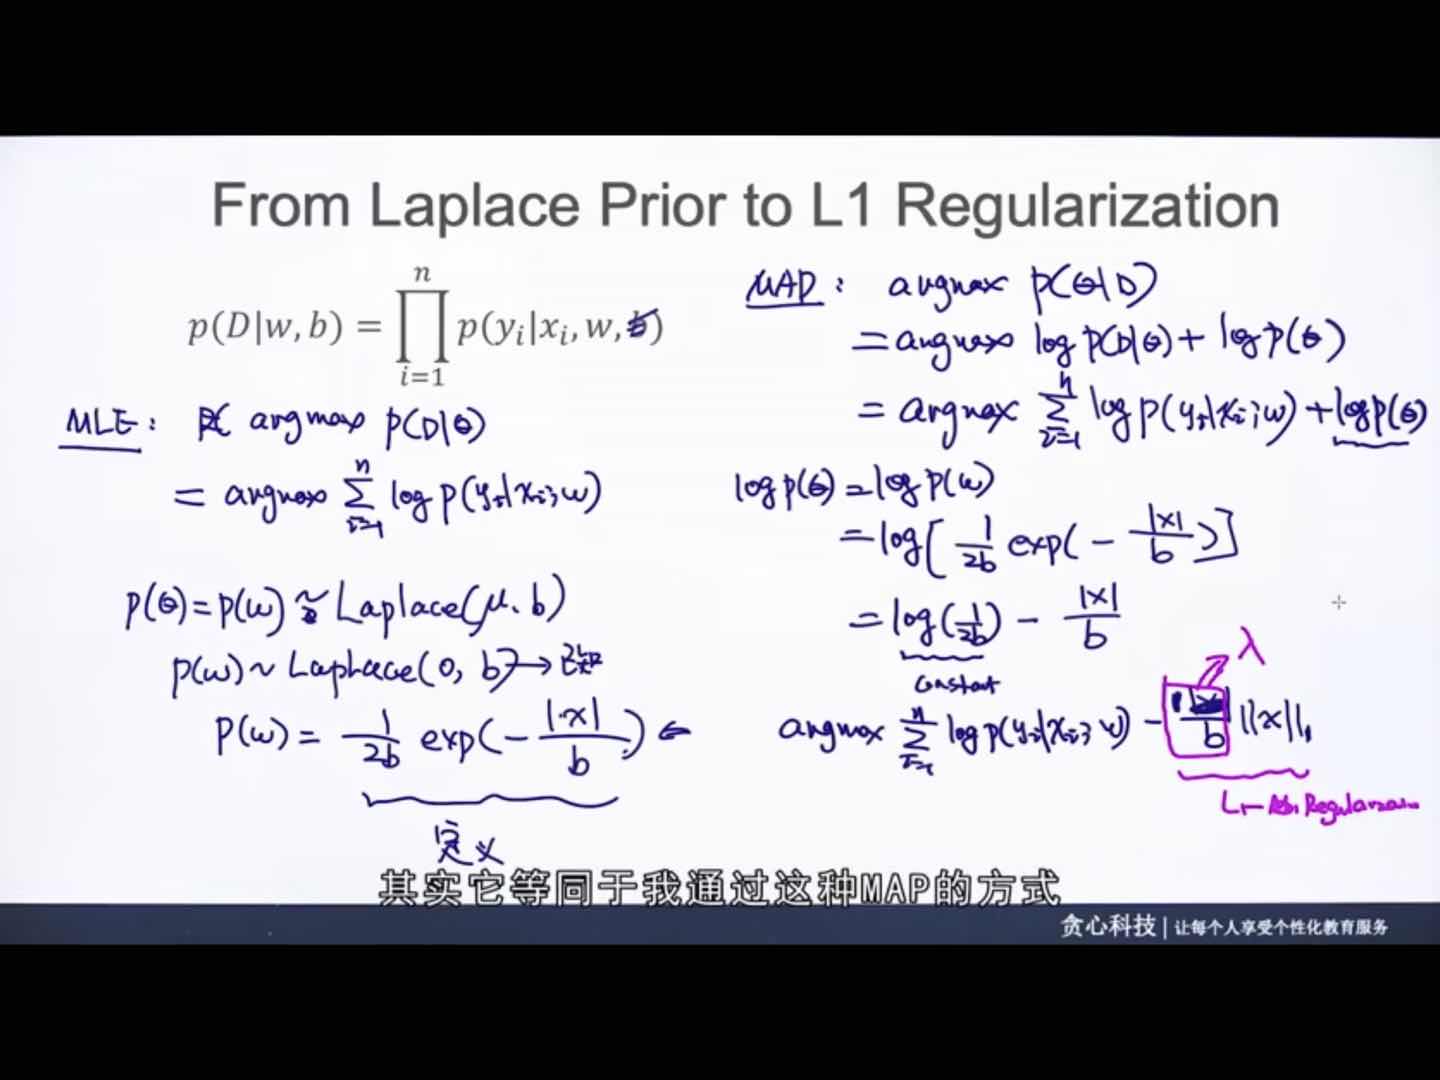 From Laplace Prior to L1 Regularization
p(D|w, b) = ∏_{i=1}^{n} p(y_i|x_i, w, b)
MLE: argmax p(D|θ)
= argmax Σ_{i=1}^{n} log p(y_i|x_i; w)
p(θ) = p(w) ~ Laplace(μ, b)
p(w) ~ Laplace(0, b) → 已知
P(w) = 1/2b exp(- |x|/b) ←
定义
MAP: argmax p(θ|D)
= argmax log p(D|θ) + log p(θ)
= argmax Σ_{i=1}^{n} log p(y_i|x_i; w) + log p(θ)
log p(θ) = log p(w)
= log[1/2b exp(- |x|/b)]
= log(1/2b) - |x|/b
constant
λ
argmax Σ_{i=1}^{n} log p(y_i|x_i; w) - 1/b ||x||₁
L1- Regularization
其实它等同于我通过这种MAP的方式
贪心科技 | 让每个人享受个性化教育服务